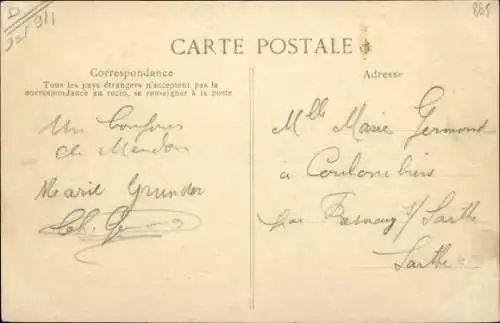 D
865
CARTE POSTALE
Correspondance
Tous les pays étrangers n'acceptent pas la
correspondance au recto, se renseigner à la poste
Adresse
Un bonjour
de Meudon
Marie Grunder
Ch.
Mlle Marie Germond
à Coulombiers
par Fresnay s/ Sarthe
Sarthe